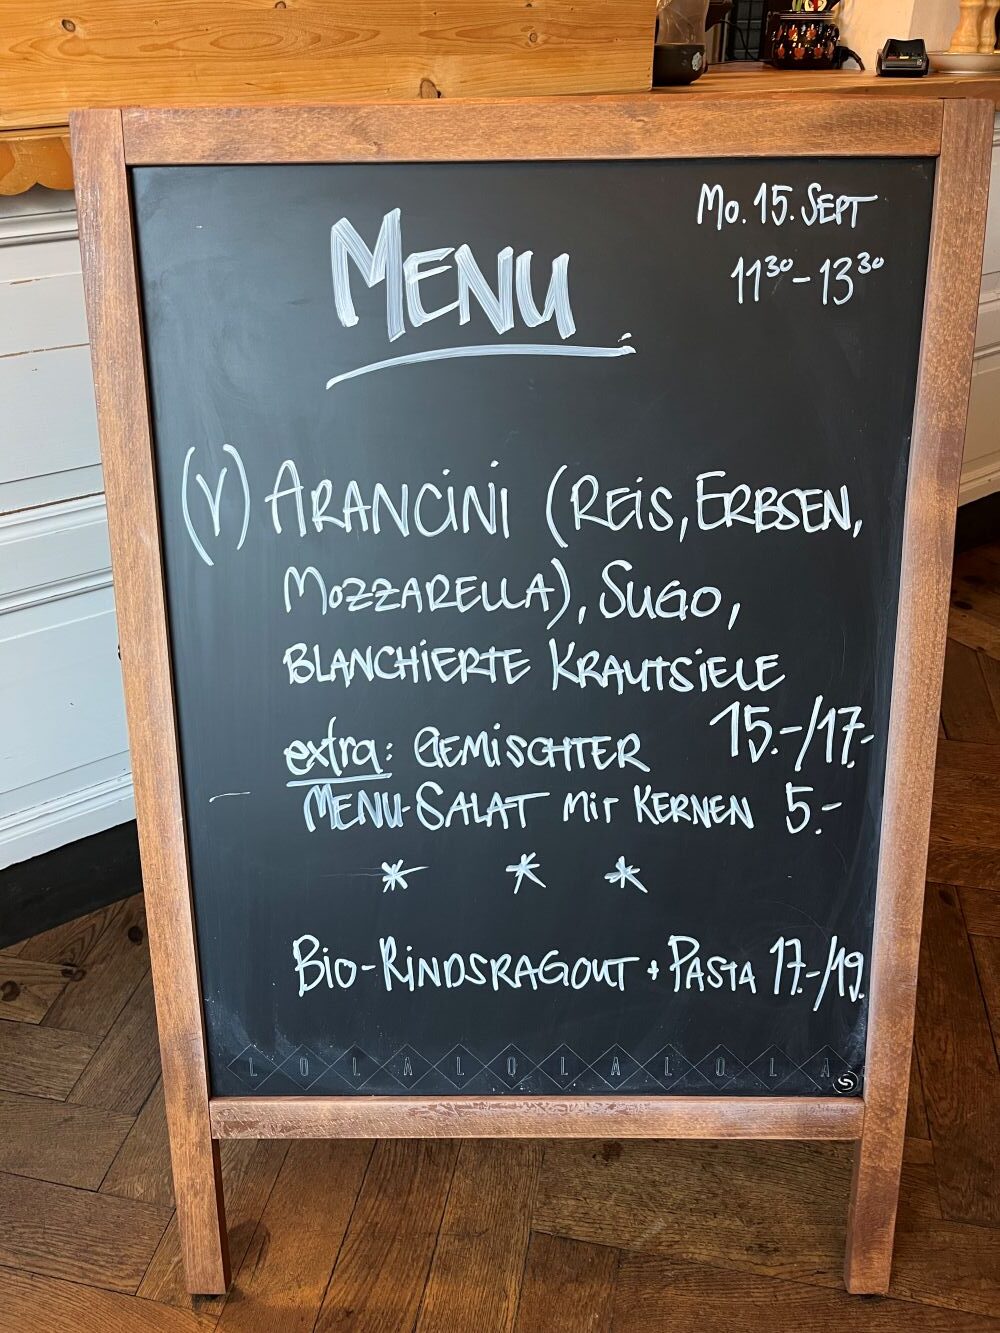 Mo. 15. SEPT
11³⁰ - 13³⁰
MENU
(V) ARANCINI (REIS, ERBSEN,
MOZZARELLA), SUGO,
BLANCHIERTE KRAUTSIELE
15.-/17.-
extra: GEMISCHTER
MENU-SALAT MIT KERNEN 5.-
* * *
BIO-RINDSRAGOUT + PASTA 17.-/19.
LOLALOLALOLA